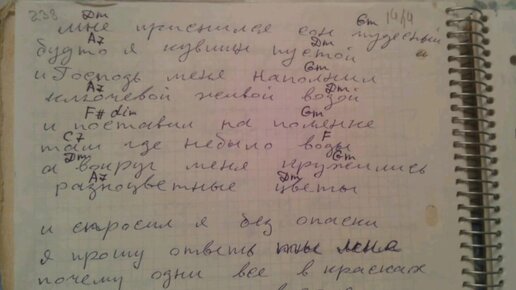 233 Dm Gm 14/4
мне приснился сон чудесный
A7 Dm
будто я кувшин пустой и
Gm
и Господь меня наполнил
A7 Dm
ключевой живой водой
F# dim Gm
и поставил на полянке
C7 F
там где небыло воды
Dm Gm
а вокруг меня кружились
A7 Dm
разноцветные цветы
и спросил я без опаски
я прошу ответь
почему одни все в красках